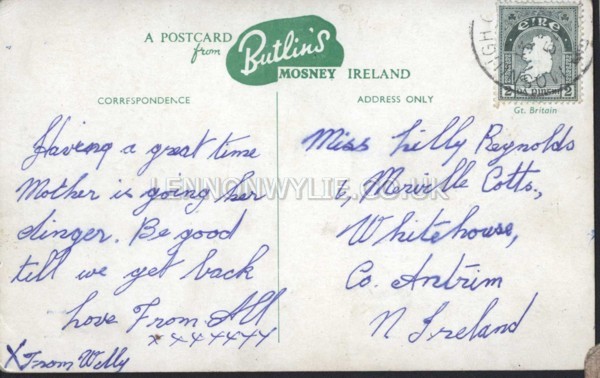 A POSTCARD
from
Butlin's
MOSNEY IRELAND
CORRESPONDENCE
ADDRESS ONLY
EIRE
2
2
Gt. Britain
Having a great time
Mother is going her
dinger. Be good
till we get back
Love From All
x x x x x x x
X From Willy
Miss Lilly Reynolds
6, Merville Cotts.,
Whitehouse,
Co. Antrim
N Ireland
LENNONWYLIE.CO.UK